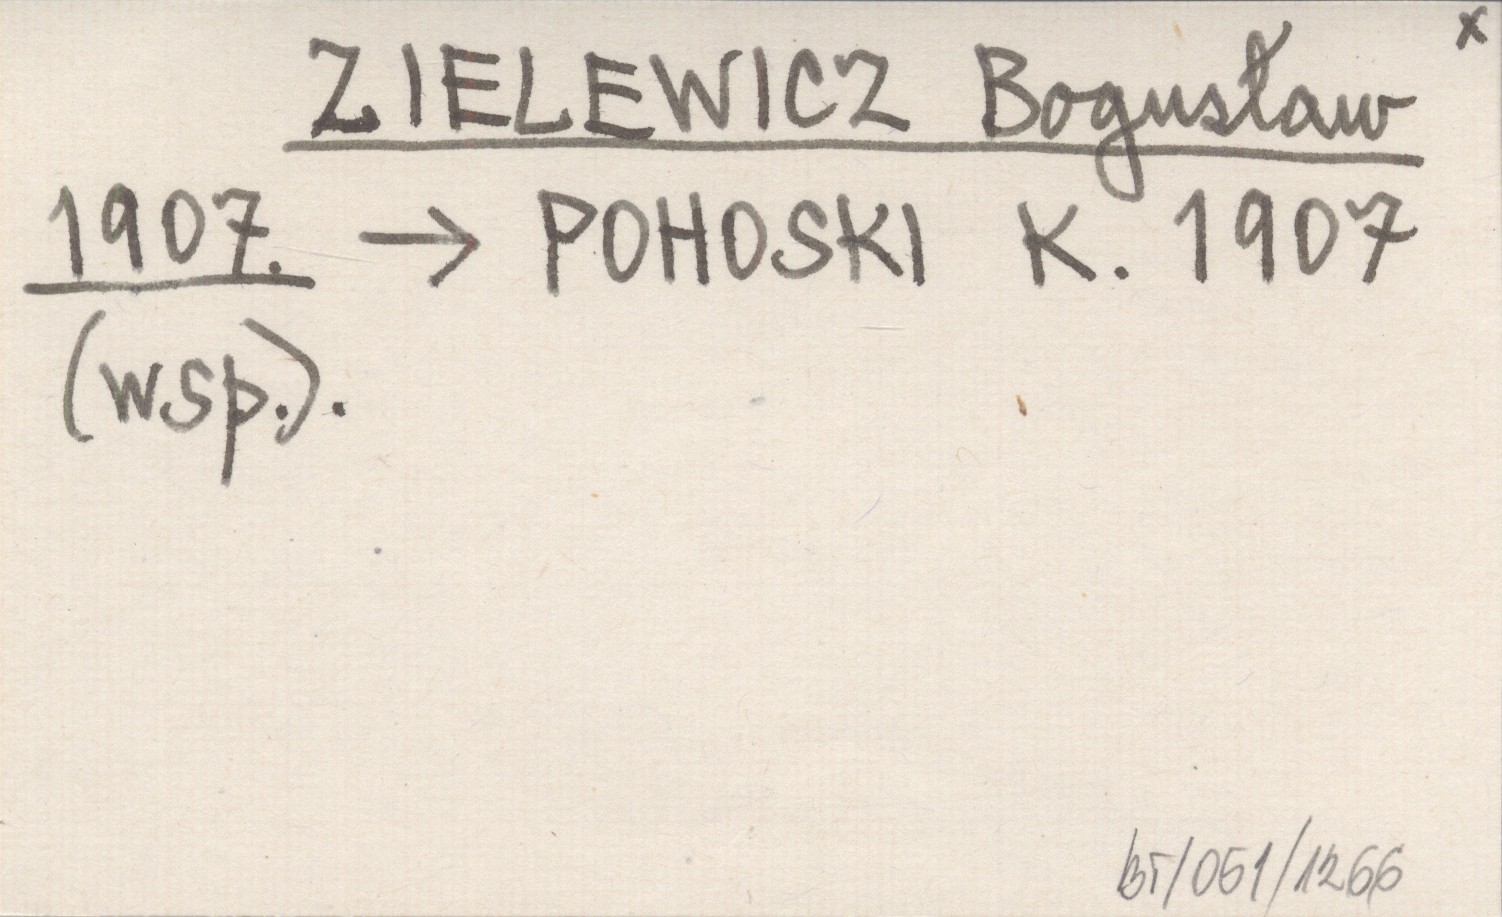 x
ZIELEWICZ Bogusław
1907. → POHOSKI K. 1907
(wsp.).
bT/051/1266